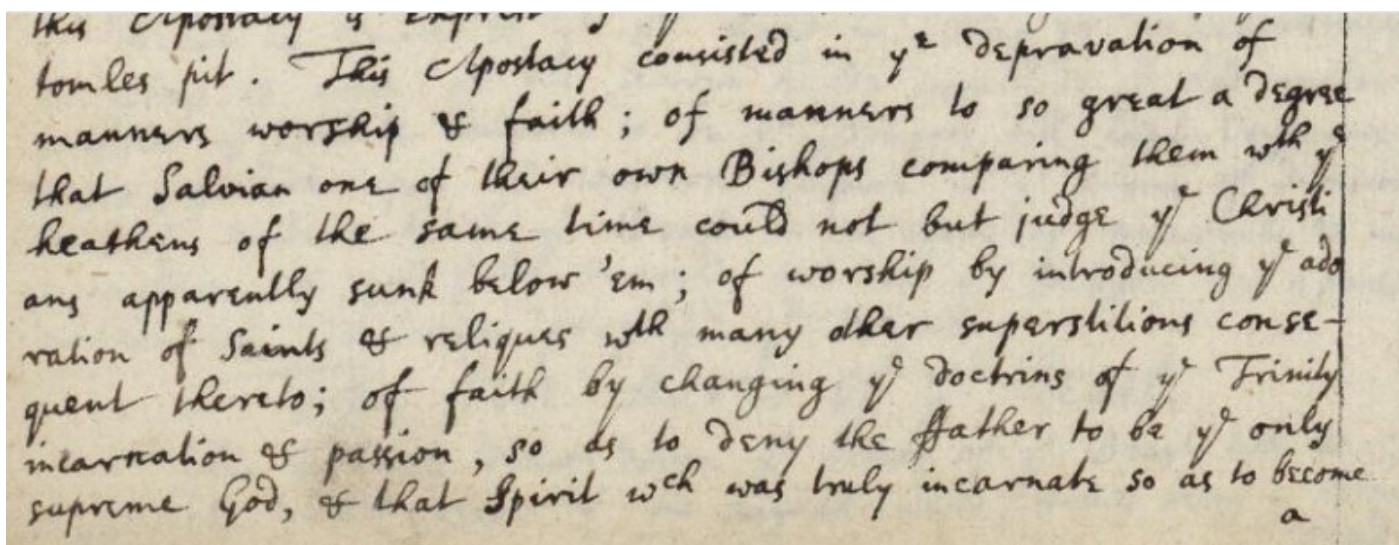 this Apostacy is exprest
tomles pit. This Apostacy consisted in yᵉ depravation of
manners worship & faith; of manners to so great a degree
that Salvian one of their own Bishops comparing them wᵗʰ yᵉ
heathens of the same time could not but judge yᵉ Christi
ans apparently sunk below 'em; of worship by introducing yᵉ ado
ration of Saints & reliques wᵗʰ many other superstitions conse-
quent thereto; of faith by changing yᵉ doctrins of yᵉ Trinity
incarnation & passion, so as to deny the ffather to be yᵉ only
supreme God, & that Spirit wᶜʰ was truly incarnate so as to become
a